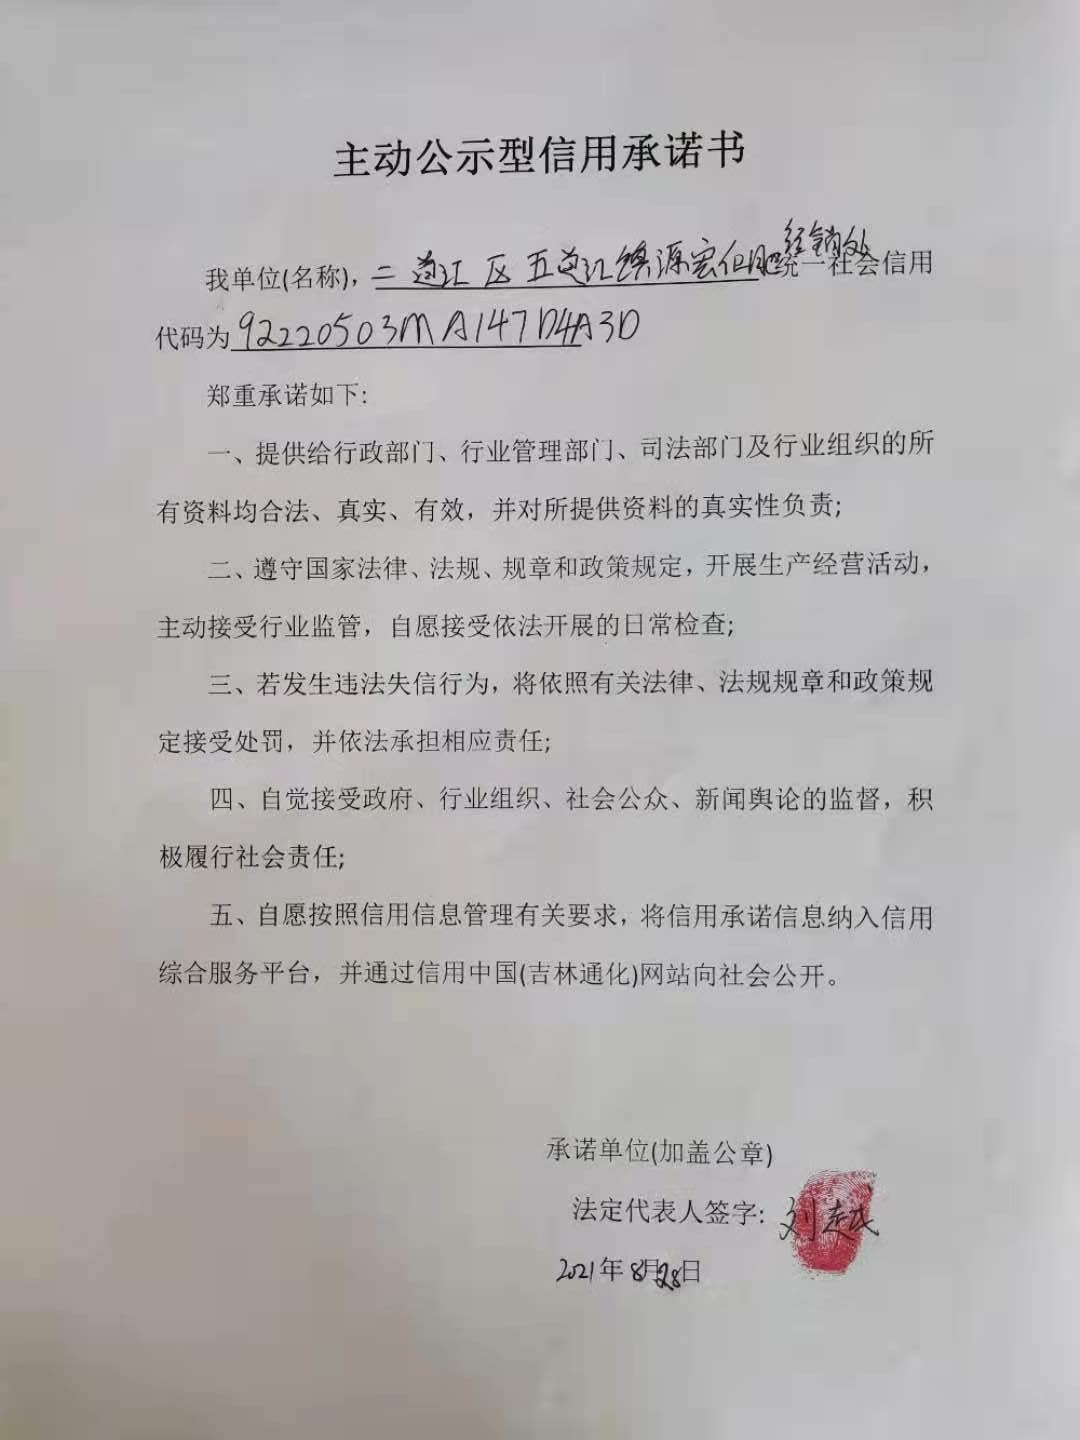 主动公示型信用承诺书
我单位(名称)，二道江区五道江镇源宏化肥经销处统一社会信用
代码为92220503MA147D4A3D
郑重承诺如下:
一、提供给行政部门、行业管理部门、司法部门及行业组织的所
有资料均合法、真实、有效，并对所提供资料的真实性负责;
二、遵守国家法律、法规、规章和政策规定，开展生产经营活动，
主动接受行业监管，自愿接受依法开展的日常检查;
三、若发生违法失信行为，将依照有关法律、法规规章和政策规
定接受处罚，并依法承担相应责任;
四、自觉接受政府、行业组织、社会公众、新闻舆论的监督，积
极履行社会责任;
五、自愿按照信用信息管理有关要求，将信用承诺信息纳入信用
综合服务平台，并通过信用中国(吉林通化)网站向社会公开。
承诺单位(加盖公章)
法定代表人签字:刘越
2021年8月28日